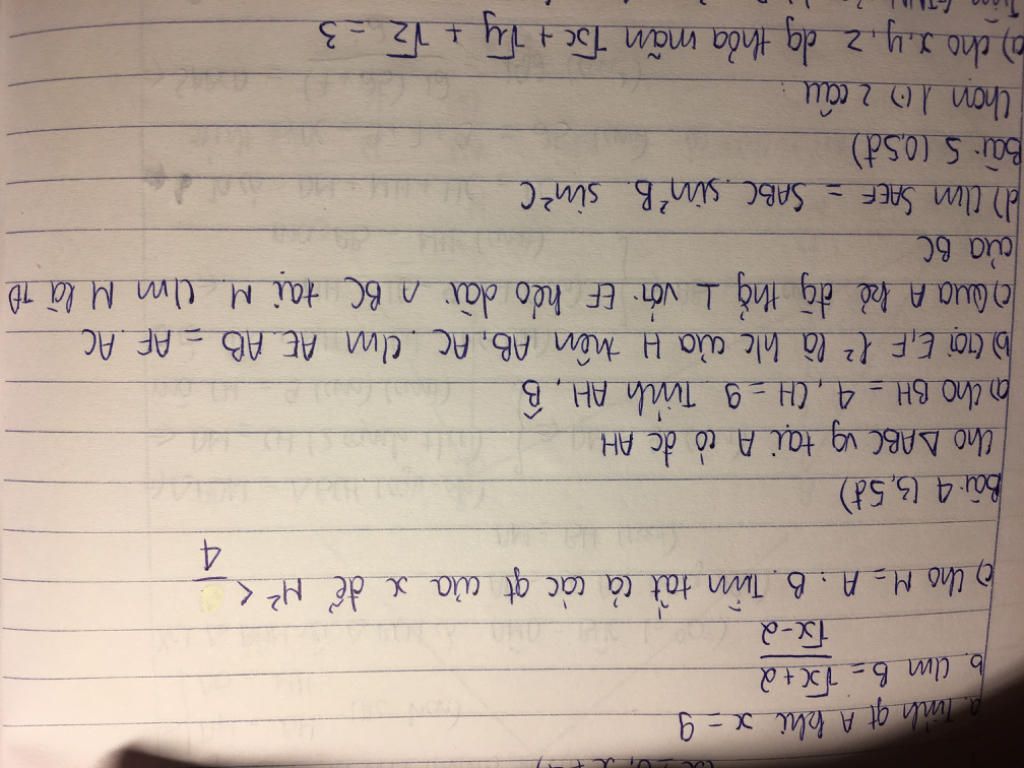 a. Tính gt A khi x = 9
b. Cm B = √x+2 / √x-2
c) Cho M = A : B. Tìm tất cả các gt của x để M² < /4
Bài 4 (3,5đ)
Cho ΔABC vg tại A có đc AH
a) Cho BH = 4, CH = 9 Tính AH, B̂
b) Gọi E, F l² là h/c của H trên AB, AC. Cm AE. AB = AF. AC
c) Qua A kẻ đg thg ⊥ với EF kéo dài ∩ BC tại M. Cm M là TĐ
của BC
d) Cm SAEF = SABC. sin²B. sin²C
Bài 5 (0,5đ)
Chọn 1 (.) 2 câu:
a) cho x, y, z dg thỏa mãn √x + √y + √z = 3